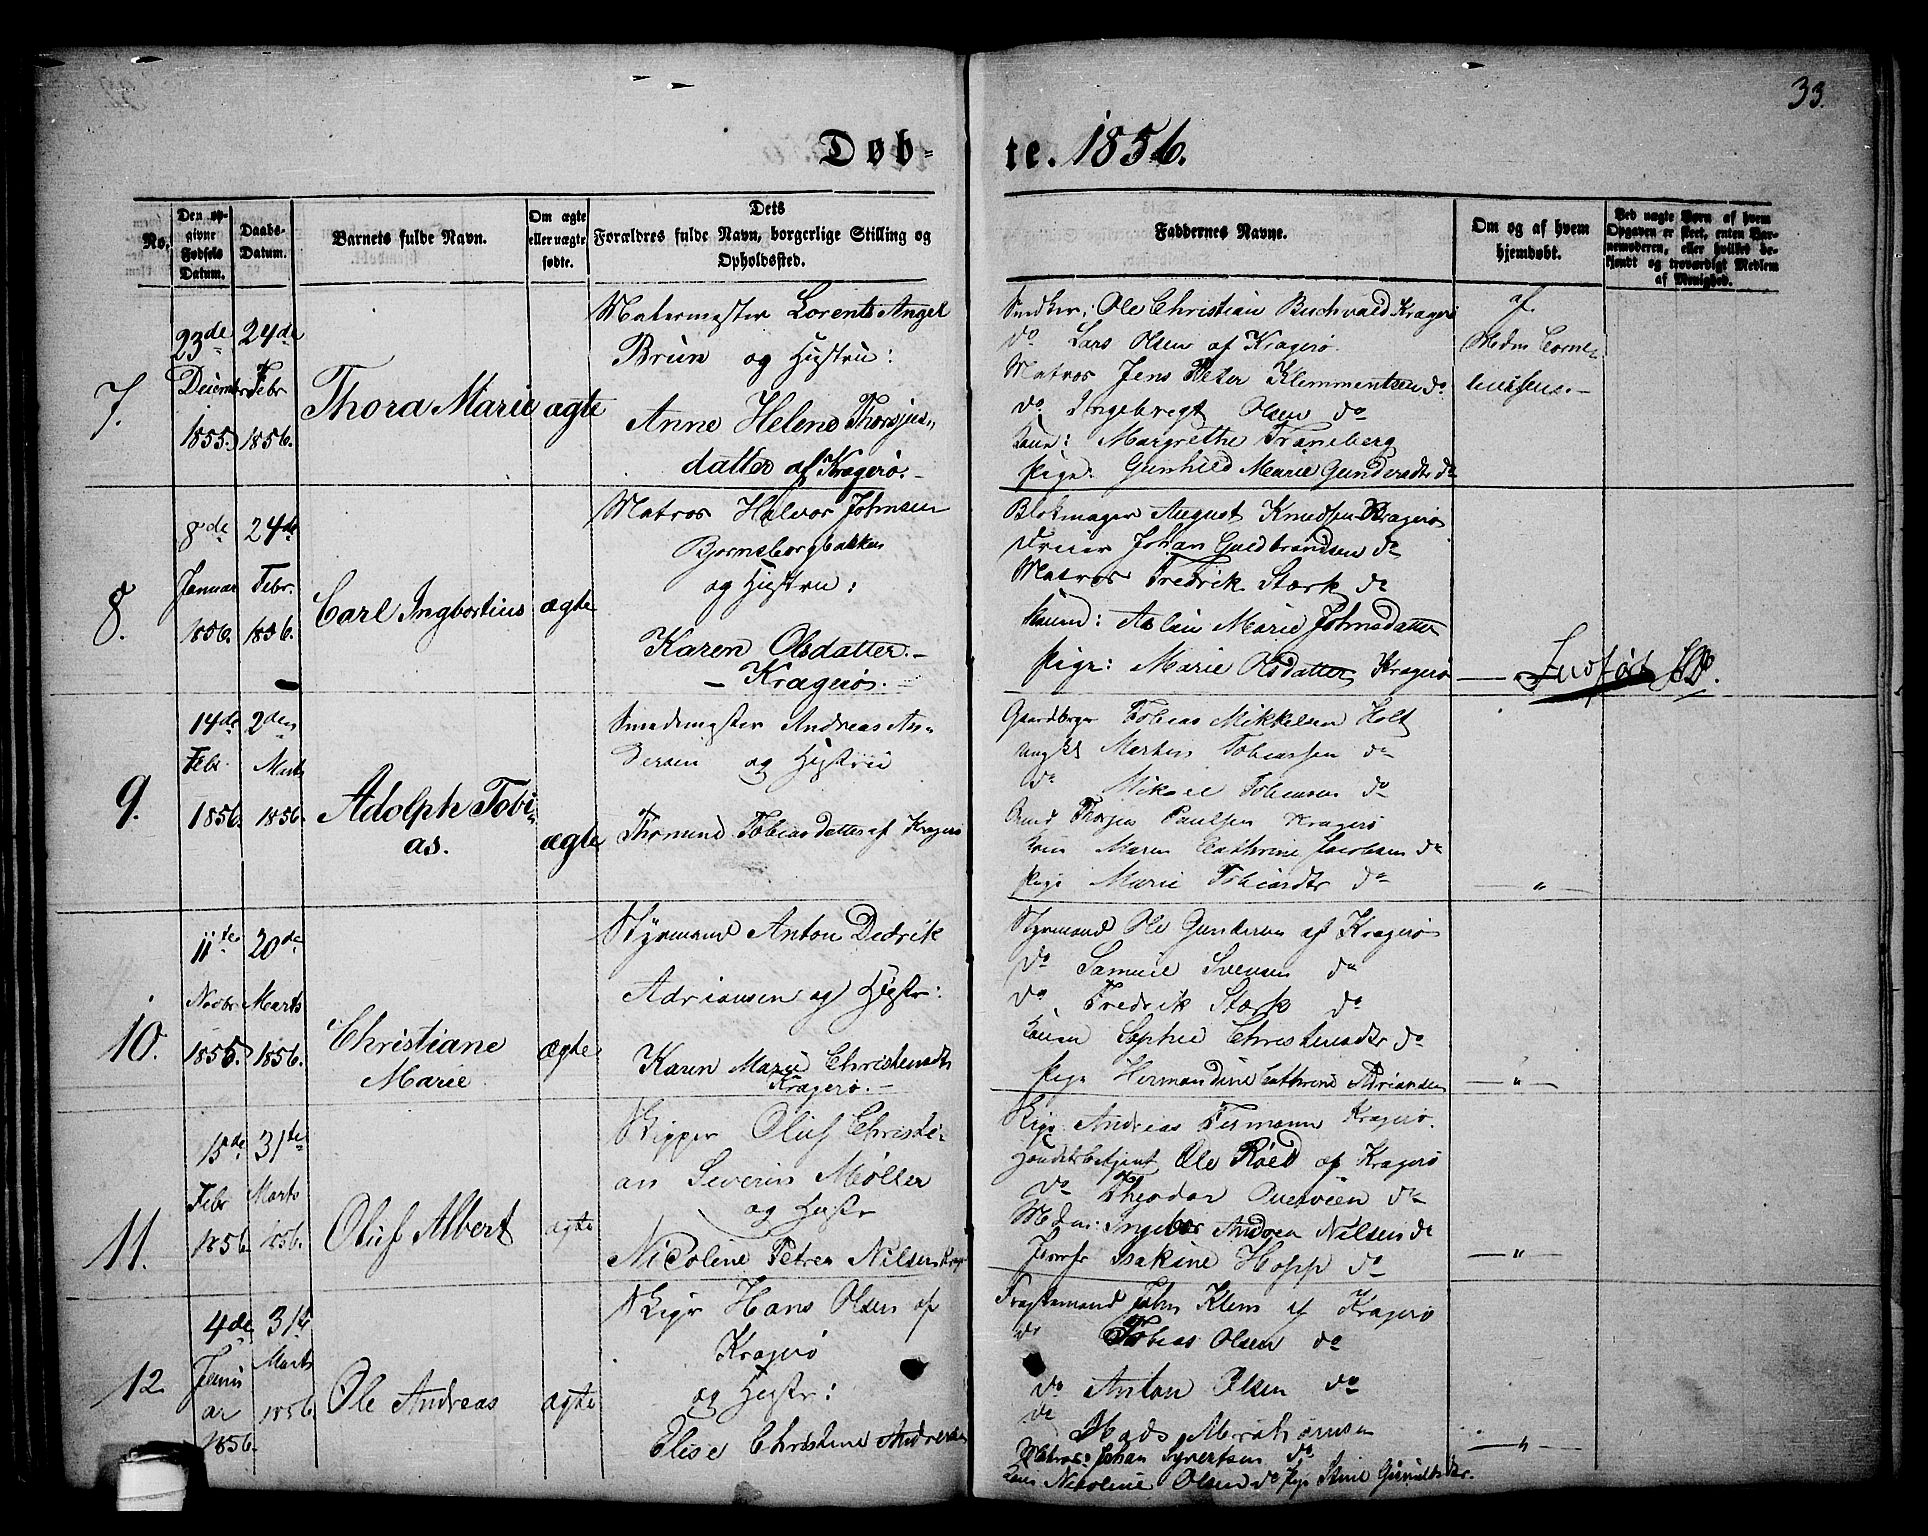 33.
Døb-
te. 1856.
No.
Den op-
givne
Fødsels
Datum.
Daabs-
Datum.
Barnets fulde Navn.
Om ægte
eller uægte
fødte.
Dets
Forældres fulde Navn, borgerlige Stilling og
Opholdssted.
Faddernes Navne.
Om og af hvem
hjemdøbt.
Ved uægte Børn af hvem
Opgaven er skeet, enten Bar-
nemoderen, eller hvilket be-
kjendt og troværdigt Medlem
af Menighed.
7.
23de
December
1855.
24de
Febr
1856.
Thora Marie
ægte
Malermester Lorents Angel
Brun og Hustru:
Anne Helene Thorsjus-
datter af Kragerø.-
Snedker: Ole Christian Buchvald Kragerø
do Lars Olsen af Kragerø
Matros Jens Peter Klemmentsen do.
do Ingebregt Olsen do
Kone: Margrethe Traneberg
Pige: Gunhild Marie Gundersdtr do
af
Mdm Corne-
liussen.-
8.
8de
Januar
1856.
24de
Febr.
1856.
Carl Ingbortius
ægte
Matros Halvor Johnsen
Bjørnsborgbakken
og Hustru:
Karen Olsdatter.-
- Kragerø. -
Blokmager August Knudsen Kragerø
Dreier Johan Guldbrandsen do
Matros Fredrik Stærk do
Kone: Marie Johnsdatter
Pige: Marie Olsdatter Kragerø
Indført
9.
14de
Febr.
1856.
2den
Marts
1856.
Adolph Tobi-
as.
ægte
Smedmester Andreas An-
dersen og Hustru
Thomine Tobiasdatter af Kragerø
Gaardbrger Tobias Mikkelsen Holt
Ungkl Martin Tobiassen do
do Mikael Tobiassen do
Smed Paulsen Kragerø
Kone Maren Cathrine Jacobsen do
Pige Marie Tobiasdtr do
- " -
10.
11te
Novbr
1855.
20de
Marts
1856.
Christiane
Marie
ægte
Styrmand Anton Dedrik
Adriansen og Hustr:
Karen Marie Christensdtr
Kragerø.-
Styrmand Ole Gundersen af Kragerø
do Samuel Svensen do
do Fredrik Stærk do
Konen Sophie Christensdtr do
Pige Hermandine Cathrine Adriansen
- " -
11.
15de
Febr
1856.
31te
Marts
1856.
Oluf Albert
ægte
Skipper Oluf Christi-
an Severin Møller
og Hustr
Nicoline Petrea Nilsen Krag
Skipr Andreas Termann Kragerø.
Handelsbetjent Ole Röed af Kragerø
do Theodor do
Mdm: Ingebor Andrea Nilsen do
Jomfr Isakine Hopp do
- " -
12.
4de
Janu
ar
1856.
31te
Marts
1856.
Ole Andreas
ægte
Skipr Hans Olsen af
Kragerø
og Hustr:
Elise Christine Andersen
Fragtemand John Klem af Kragerø
do Tobias Olsen do
do Anton Olsen do
do Mads
Matros: Johan Syvertsen do
Kone Nicoline Olsen do Pige Stine
- " -